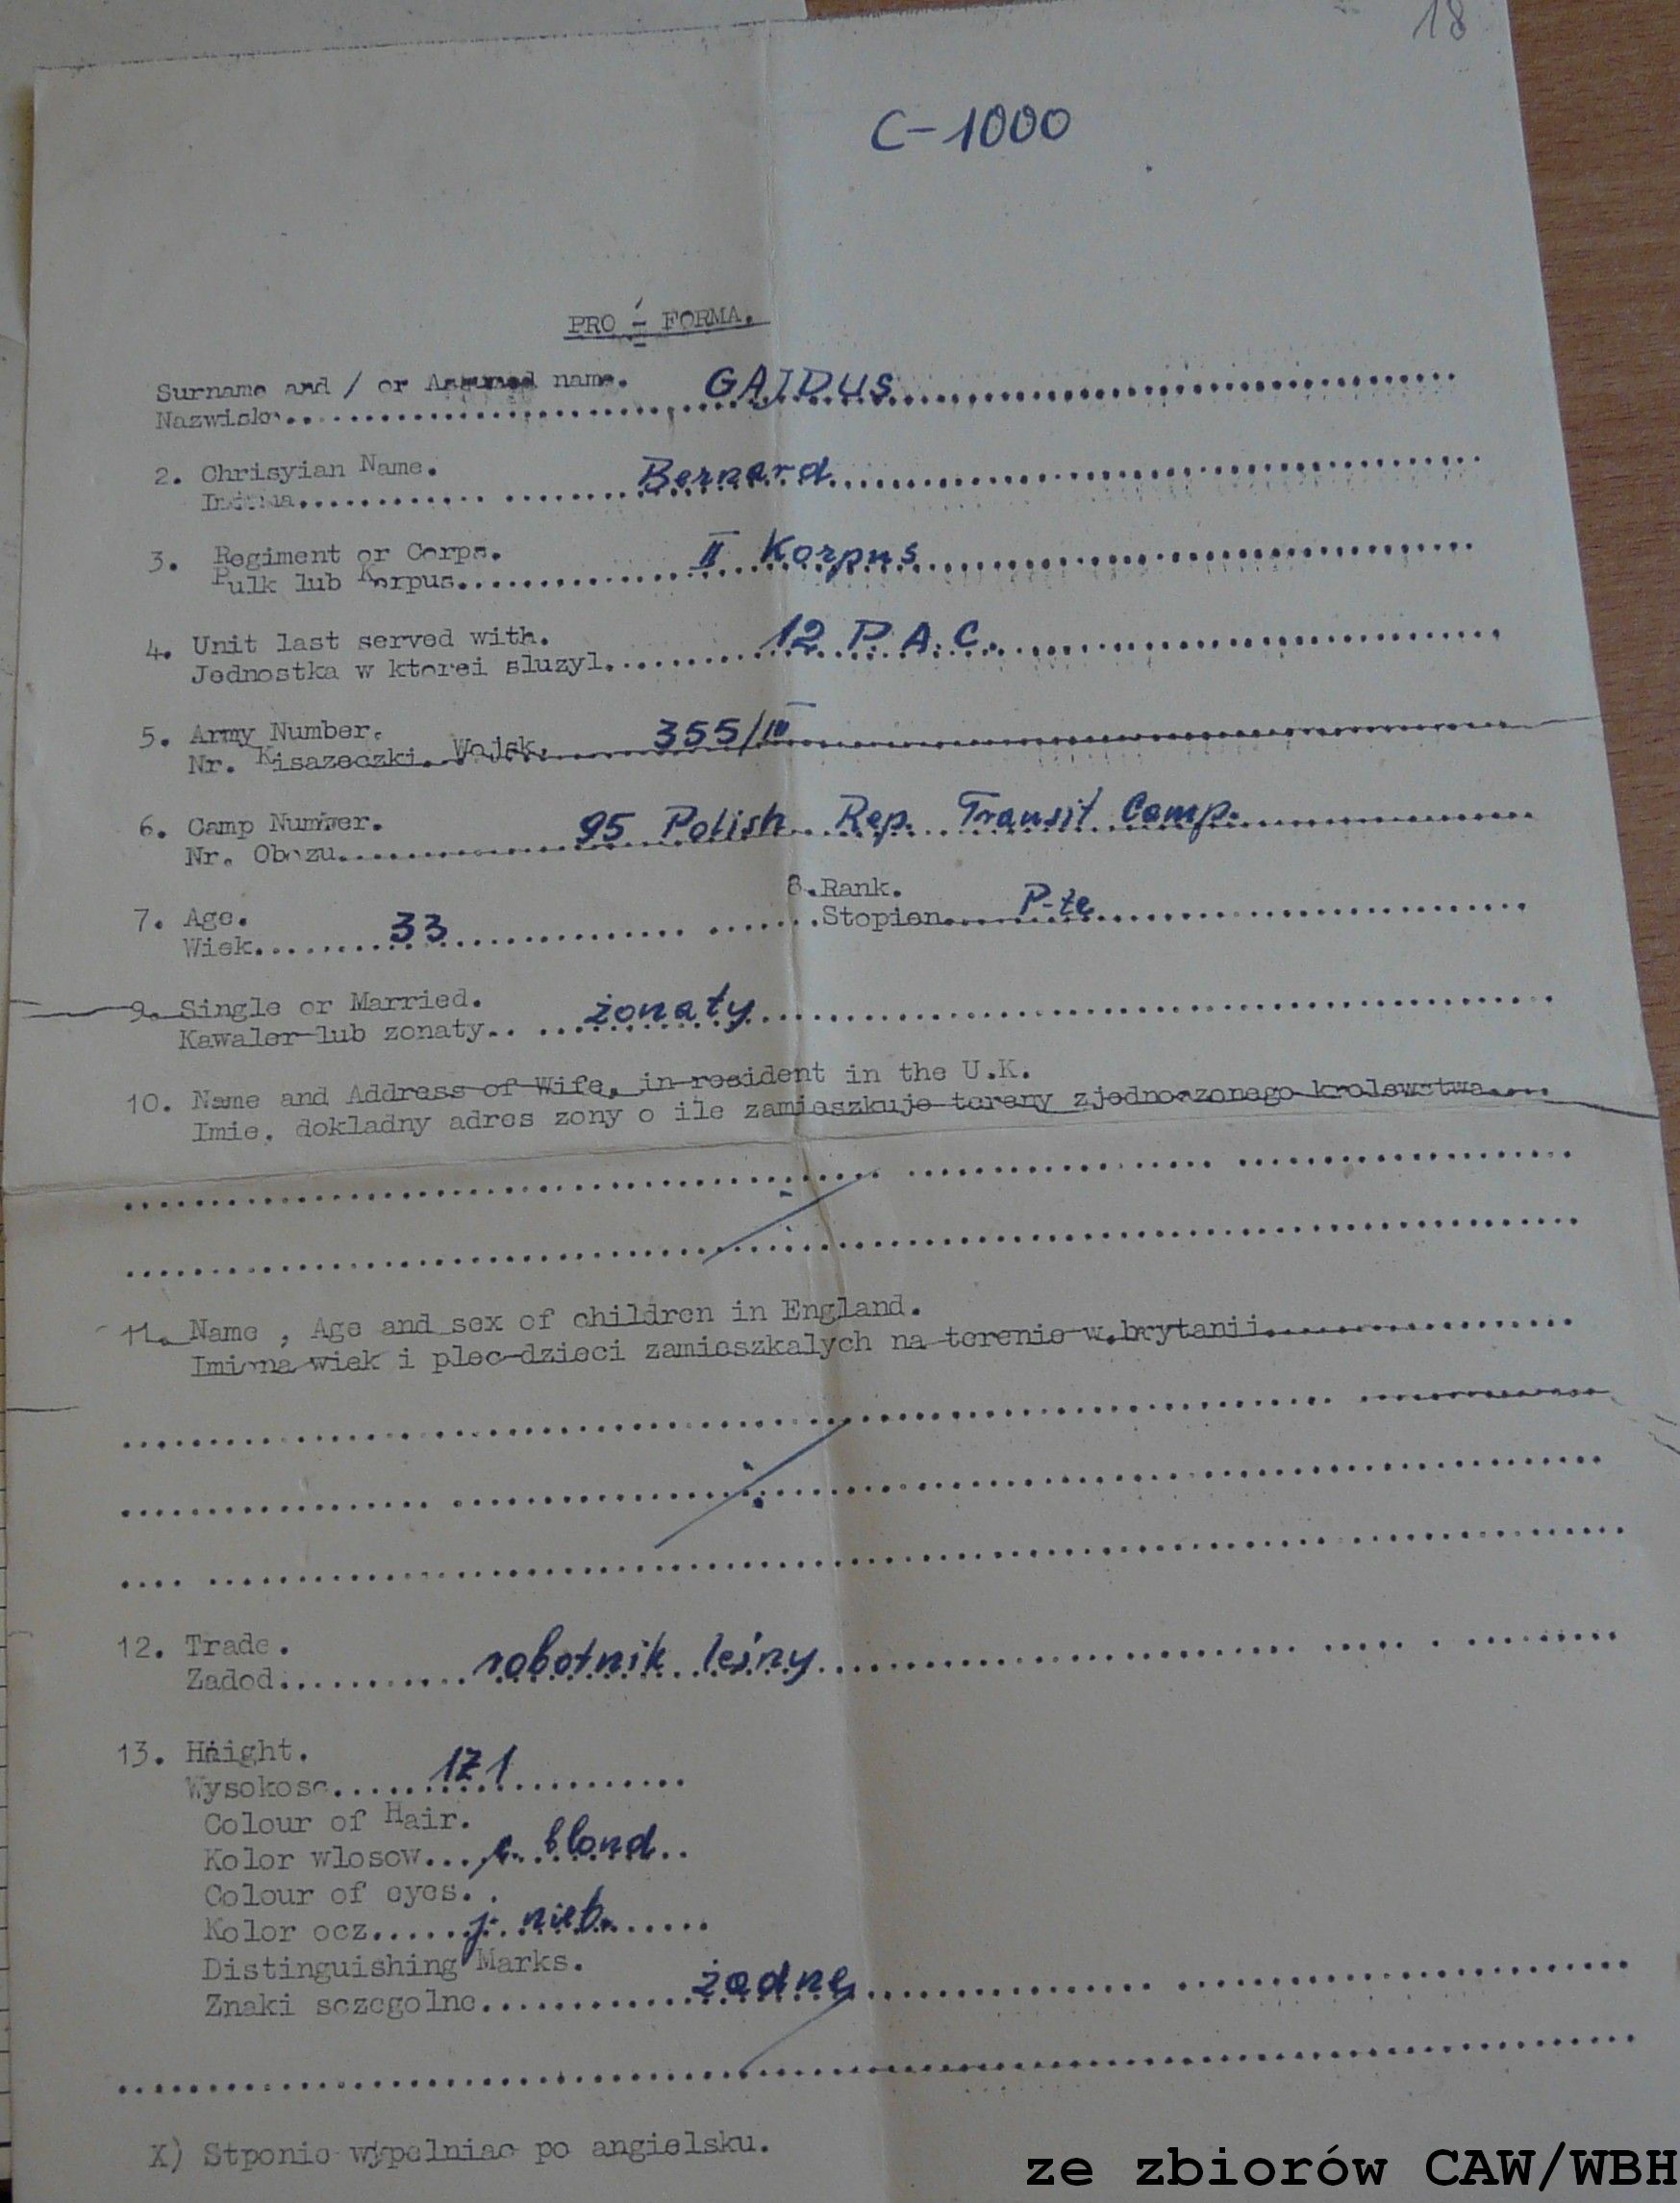 18
C-1000
PRO - FORMA.
Surname and / or Assumed name. GAJDUS
Nazwisko
2. Chrisyian Name. Bernard
3. Regiment or Corps. II Korpus
Pulk lub Korpus
4. Unit last served with. 12 P.A.C.
Jednostka w ktorei sluzyl
5. Army Number. 355/III
Nr. Kisazeczki Wojsk.
6. Camp Number. 95 Polish Rep. Transit Camp.
Nr. Obozu
8. Rank.
7. Age. 33 Stopien P-te
Wiek
9. Single or Married. żonaty
Kawaler lub zonaty
10. Name and Address of Wife, in resident in the U.K.
Imie, dokladny adres zony o ile zamieszkuje tereny zjednoczonego krolewstwa
11. Name , Age and sex of children in England.
Imiona wiek i plec dzieci zamieszkalych na terenie w.brytanii
12. Trade. robotnik leśny
Zadod
13. Haight. 171
Wysokosc
Colour of Hair.
Kolor wlosow c. blond
Colour of eyes.
Kolor ocz j. nieb.
Distinguishing Marks. żadne
Znaki sczegolne
X) Stponie wypelniac po angielsku.
ze zbiorów CAW/WBH